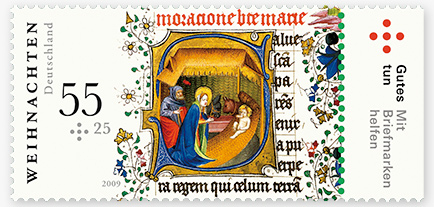 WEIHNACHTEN
Deutschland
55
25
2009
moracione bt̄e marie
alue
scā
pa
rēs
enix
a puerpe
ra regem qui celum terrā
Gutes
tun
Mit
Briefmarken
helfen